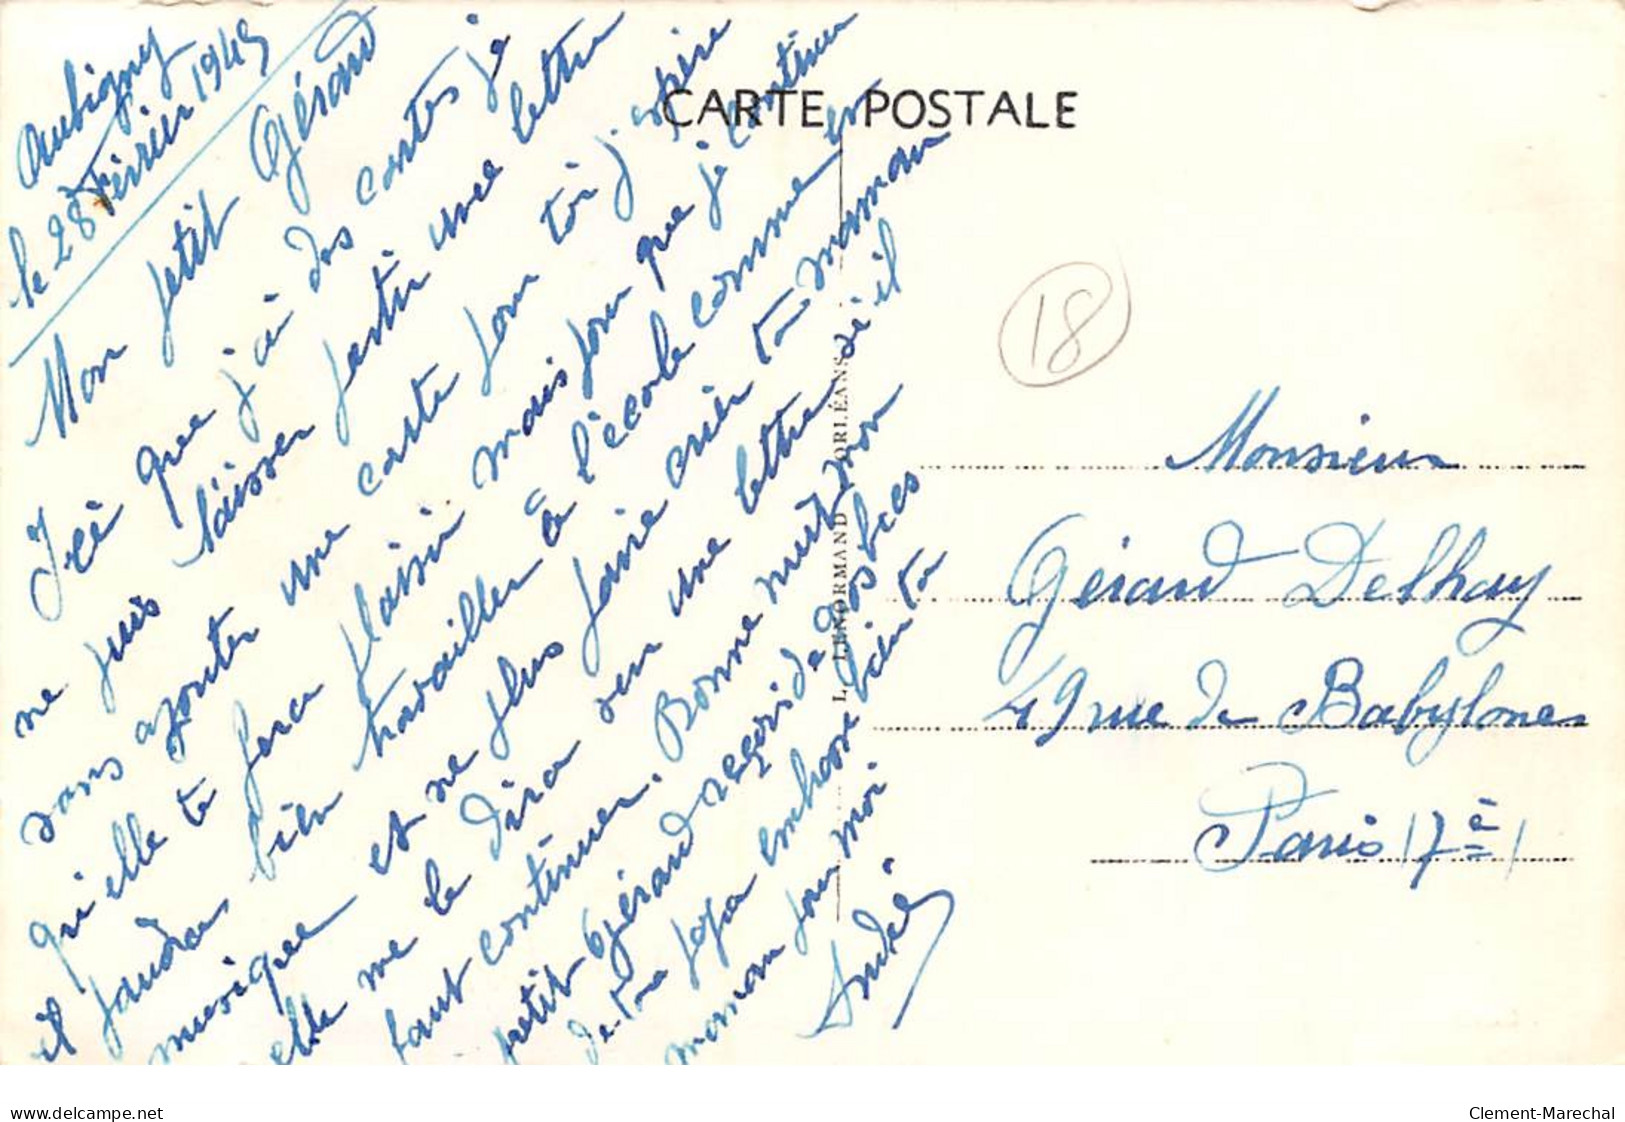 Aubigny
le 28 Février 1949
Mon petit Gérard
Ici que j'ai des cartes je
ne puis laisser partir une lettre
sans ajouter une carte pour toi j'espère
qu'elle te fera plaisir mais pour que je continue
il faudra bien travailler à l'école comme en
musique et ne plus faire crier ta maman
elle me le dira sur une lettre si il
faut continuer. Bonne nuit mon
petit Gérard reçoit de gos bises
de ton papa embrasse bien ta
maman pour moi
André
CARTE POSTALE
L. LENORMAND ORLÉANS
18
Monsieur
Gérard Delhay
49 rue de Babylones
Paris 17è
delcampe.net
Clement-Marechal